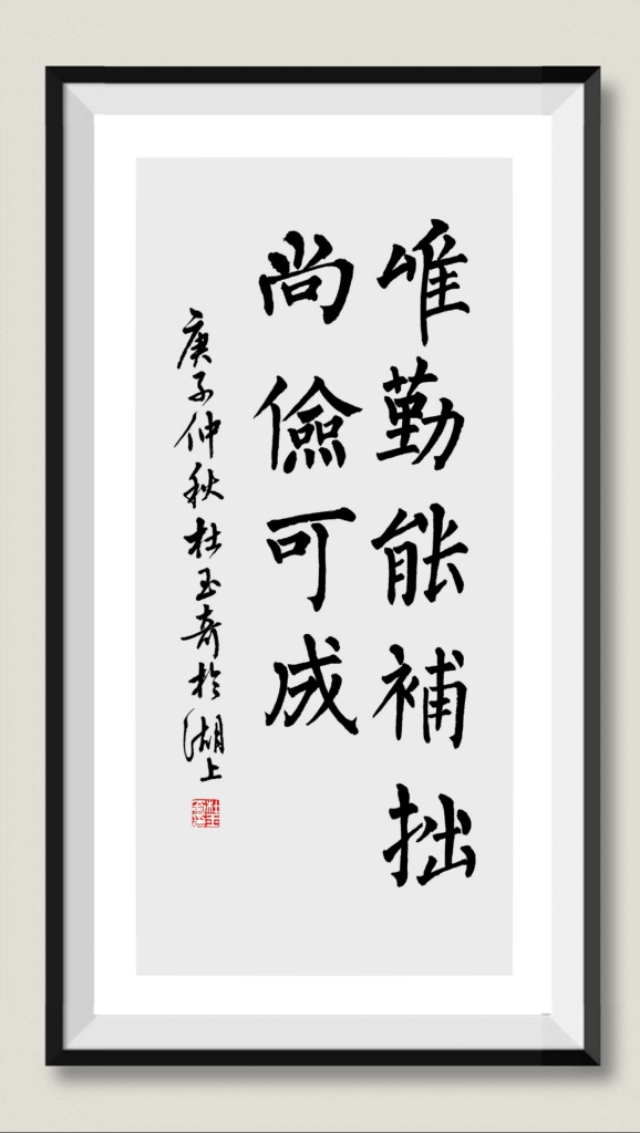 唯勤能補拙
尚儉可成
庚子仲秋杜玉奇於湖上
杜玉奇印